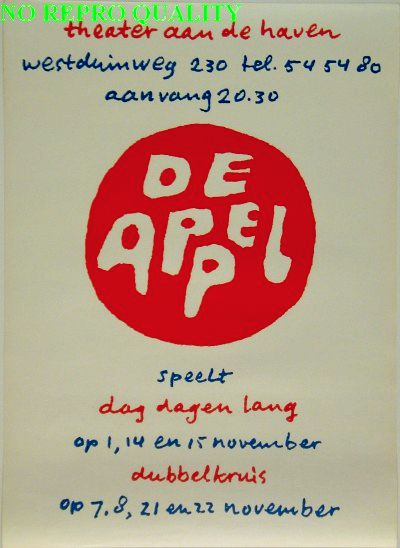 NO REPRO QUALITY
theater aan de haven
westduinweg 230 tel. 54 54 80
aanvang 20.30
DE
APPEL
speelt
dag dagen lang
op 1, 14 en 15 november
dubbelkruis
op 7.8, 21 en 22 november